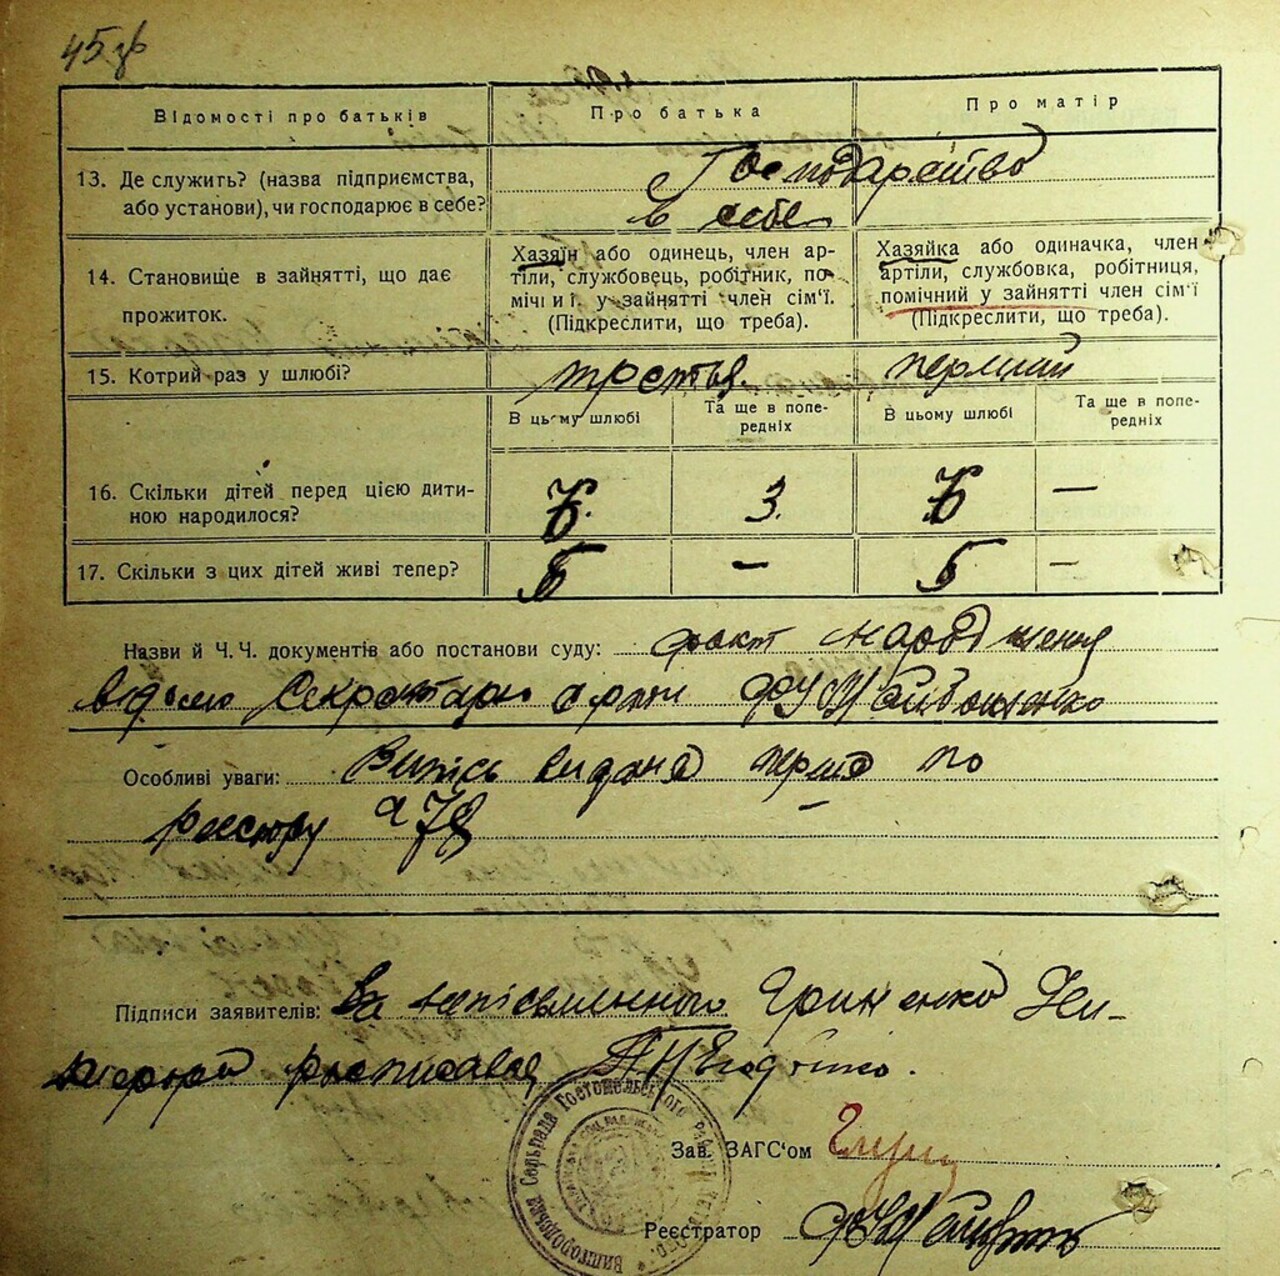 45 зв
Відомості про батьків
Про батька
Про матір
13. Де служить? (назва підприємства,
або установи), чи господарює в себе?
Господарство
в себе
14. Становище в зайнятті, що дає
прожиток.
Хазяїн або одинець, член ар-
тіли, службовець, робітник, по-
мічний у зайнятті член сім'ї.
(Підкреслити, що треба).
Хазяйка або одиначка, член
артіли, службовка, робітниця,
помічний у зайнятті член сім'ї
(Підкреслити, що треба).
15. Котрий раз у шлюбі?
третья.
перший
В цьому шлюбі
Та ще в попе-
редніх
В цьому шлюбі
Та ще в попе-
редніх
16. Скільки дітей перед цією дити-
ною народилося?
3.
—
17. Скільки з цих дітей живі тепер?
5
—
5
—
Назви й Ч. Ч. документів або постанови суду: факт народження
Секретарю
Особливі уваги: Випись видана перша по
реєстру 78
Підписи заявителів: За неписьменного Гриненко
росписався
Вишгородська Сельрада Гостомельського
Зав. ЗАГС'ом
Реєстратор